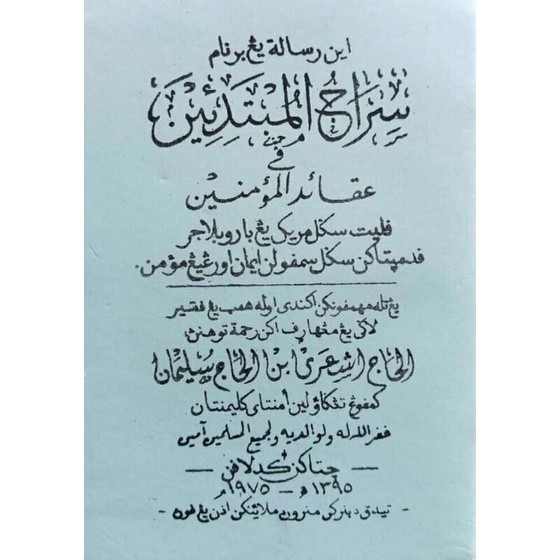 اين رسالة يڠ برنام
سِرَاجُ الْمُبْتَدِئِيْنَ
في
عقائد المؤمنين
ڤليت سكل مريك يڠ بارو بلاجر
ڤد مپتاكن سكل سمڤولن ايمان اورڠ يڠ مؤمن.
يڠ تله مڠهمڤونكن اكندي اوله همب يڠ فقير
لاݢي يڠ مڠهارف اكن رحمة توهنڽ
الحاج اشعري ابن الحاج سليمان
كمڤوڠ تڠكاولين امنتاي كليمنتان
غفر الله له ولوالديه ولجميع المسلمين آمين
— چيتاكن كدلاڤن —
١٣٩٥ ه‍ – ١٩٧٥ م
- تيدق دبنركن منيرو ملاينكن اذن يڠ ڤون -